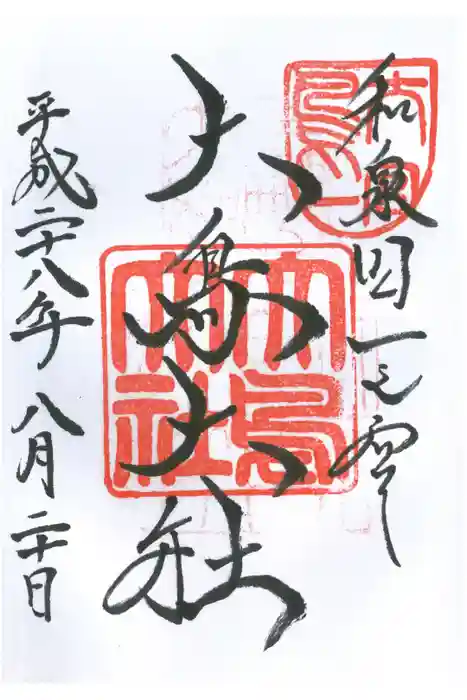 和泉国一之宮
大鳥大社
大鳥
大社
平成二十八年八月二十日